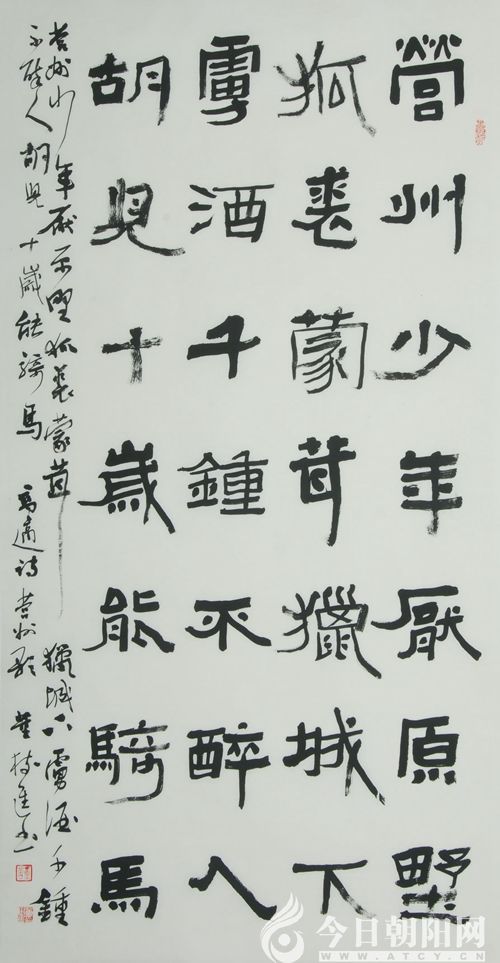 營州少年厭原野
狐裘蒙茸獵城下
虜酒千鍾不醉人
胡兒十歲能騎馬
營州少年厭原野狐裘蒙茸獵城下虜酒千鍾
不醉人胡兒十歲能騎馬 高適詩營州歌 董進書
今日朝阳网
WWW.ATCY.CN